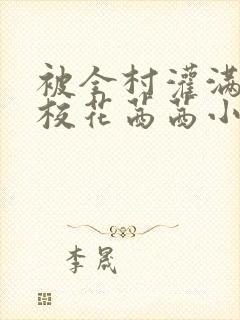 被全村灌满
校花茜茜小
李晟